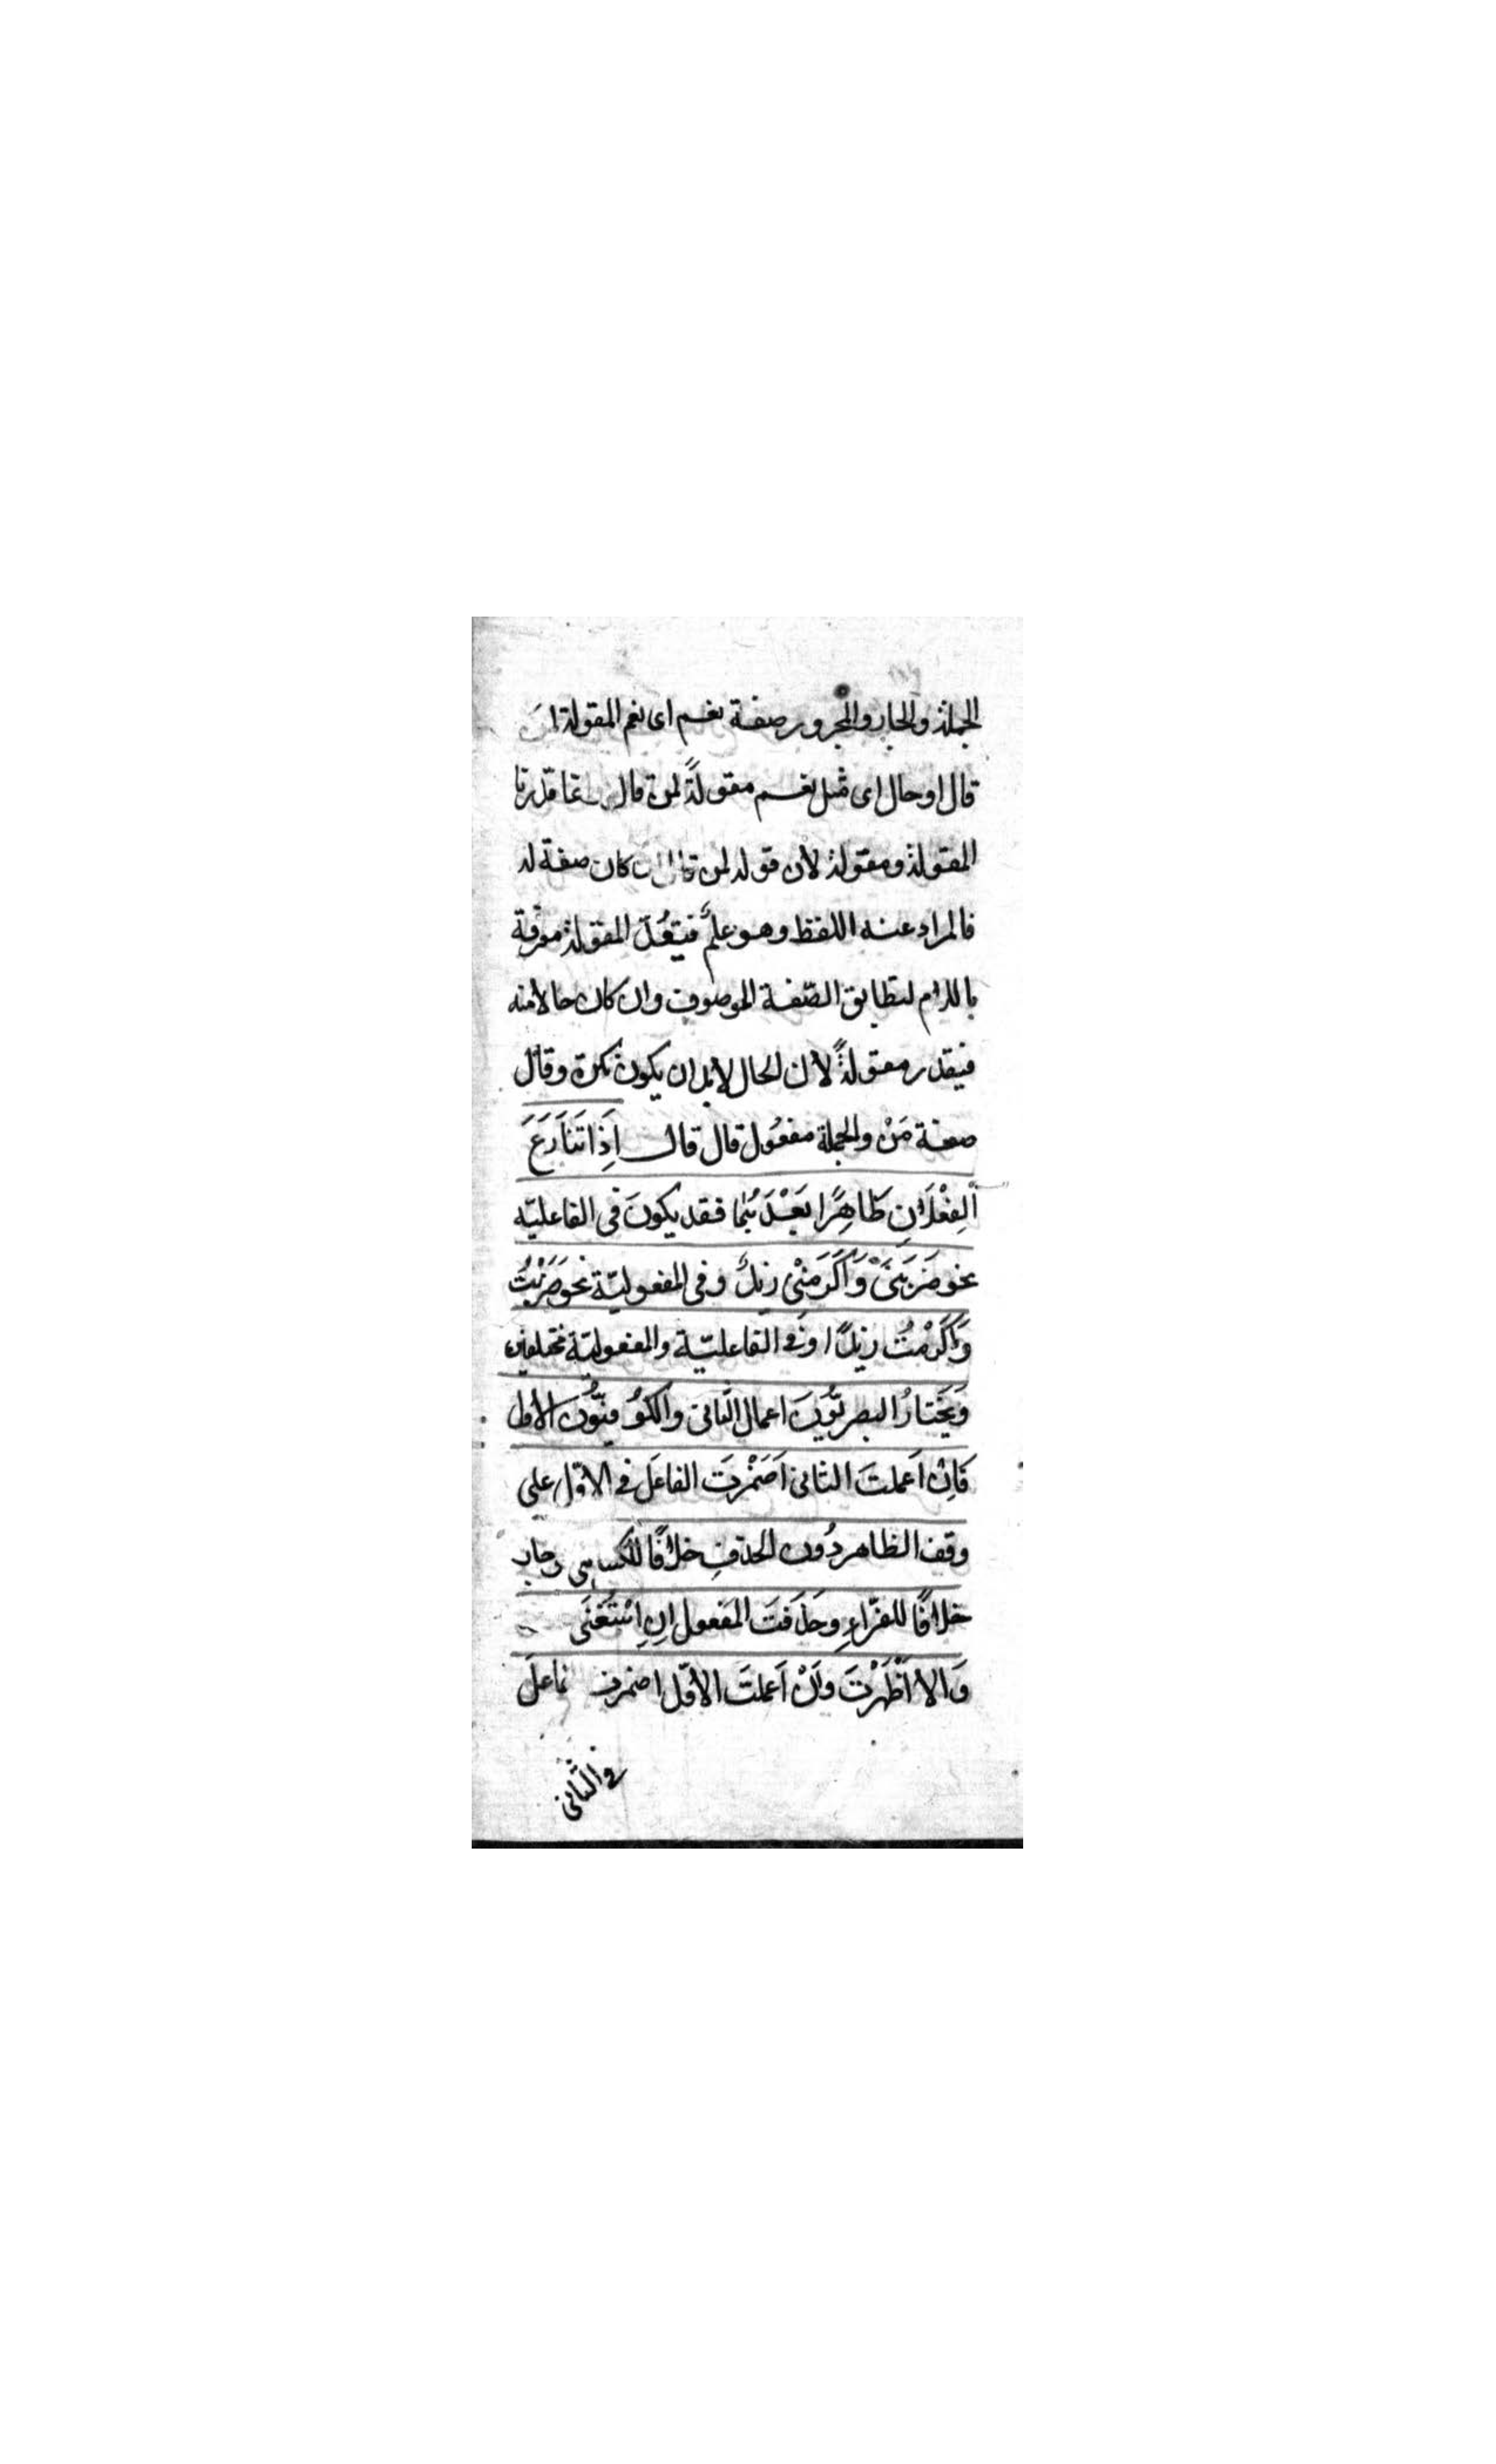 الجملة والجار والمجرور صفة نعم اى نعم المقولة لمن
قال او حال اى مثل نعم مقولةً لمن قال انما قدّرنا
المقولة ومقولة لأن قوله لمن قال ان كان صفة له
فالمراد عنه اللفظ وهو علمٌ فيتعدّ المقولة معرّفة
باللام لتطابق الصّفة الموصوف وان كان حالا منه
فيقدر مقولةً لأن الحال لابد ان يكون نكرة وقال
صفة مَنْ والجملة مفعُول قال قال اِذَا تَنَازَعَ
اَلفِعْلَانِ ظَاهِرًا بَعْدَهُمَا فقد يكونَ فى الفاعليّه
نحو ضَرَبَنِىْ وَاَكْرَمَنِىْ زيدٌ وفى المفعوليّة نحو ضَرَبْتُ
وَاَكْرَمْتُ زيدًا وفى الفاعليّة والمفعوليّة مختلفين
وَيَخْتَارُ البصريّوُنَ اعمال الثّانى والكوُفيّوُن الأوّل
فَاِنْ اَعملتَ الثانى اَضْمَرْتَ الفاعَل فى الاوّل على
وفق الظاهر دُون الحذفِ خلافًا للكسايى وجاز
خلافًا للفرّاءِ وحَذَفتَ المَفعول اِنِ اسْتُغْنَى
وَالا اَظْهَرْتَ وَاِنْ اَعملتَ الاوّل اضمرت فاعلَ
فى الثّانى